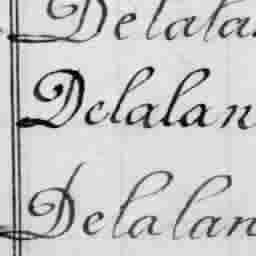 Delala
Delalan
Delalan